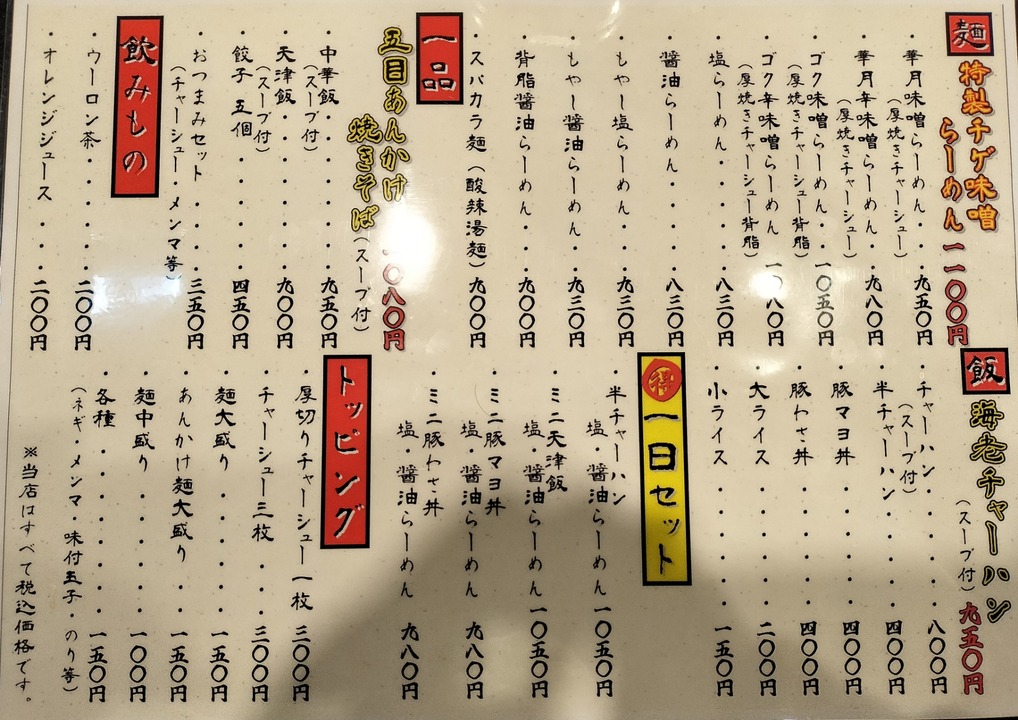 麺
特製チゲ味噌
らーめん 一一〇〇円
・華月味噌らーめん・・九五〇円
(厚焼きチャーシュー)
・華月辛味噌らーめん・九八〇円
(厚焼きチャーシュー)
・ゴク味噌らーめん・一〇五〇円
(厚焼きチャーシュー背脂)
・ゴク辛味噌らーめん 一〇八〇円
(厚焼きチャーシュー背脂)
・塩らーめん・・・・・八三〇円
・醤油らーめん・・・・八三〇円
・もやし塩らーめん・・九三〇円
・もやし醤油らーめん・九三〇円
・背脂醤油らーめん・・九〇〇円
・スパカラ麺(酸辣湯麺)九〇〇円
一品
五目あんかけ
焼きそば(スープ付)
・一〇八〇円
・中華飯・・・・・・・九五〇円
(スープ付)
・天津飯・・・・・・・九〇〇円
(スープ付)
・餃子 五個・・・・・四五〇円
・おつまみセット・・・三五〇円
(チャーシュー・メンマ等)
飲みもの
・ウーロン茶・・・・・二〇〇円
・オレンジジュース・・二〇〇円
飯
海老チャーハン
(スープ付)九五〇円
・チャーハン・・・・・八〇〇円
(スープ付)
・半チャーハン・・・・四〇〇円
・豚マヨ丼・・・・・・四〇〇円
・豚わさ丼・・・・・・四〇〇円
・大ライス・・・・・・二〇〇円
・小ライス・・・・・・一五〇円
得一日セット
・半チャーハン
塩・醤油らーめん 一〇五〇円
・ミニ天津飯
塩・醤油らーめん 一〇五〇円
・ミニ豚マヨ丼
塩・醤油らーめん 九八〇円
・ミニ豚わさ丼
塩・醤油らーめん 九八〇円
トッピング
・厚切りチャーシュー一枚 三〇〇円
・チャーシュー三枚・・三〇〇円
・麺大盛り・・・・・・一五〇円
・あんかけ麺大盛り・・一五〇円
・麺中盛り・・・・・・一〇〇円
・各種・・・・・・・・一五〇円
(ネギ・メンマ・味付玉子・のり等)
※当店はすべて税込価格です。